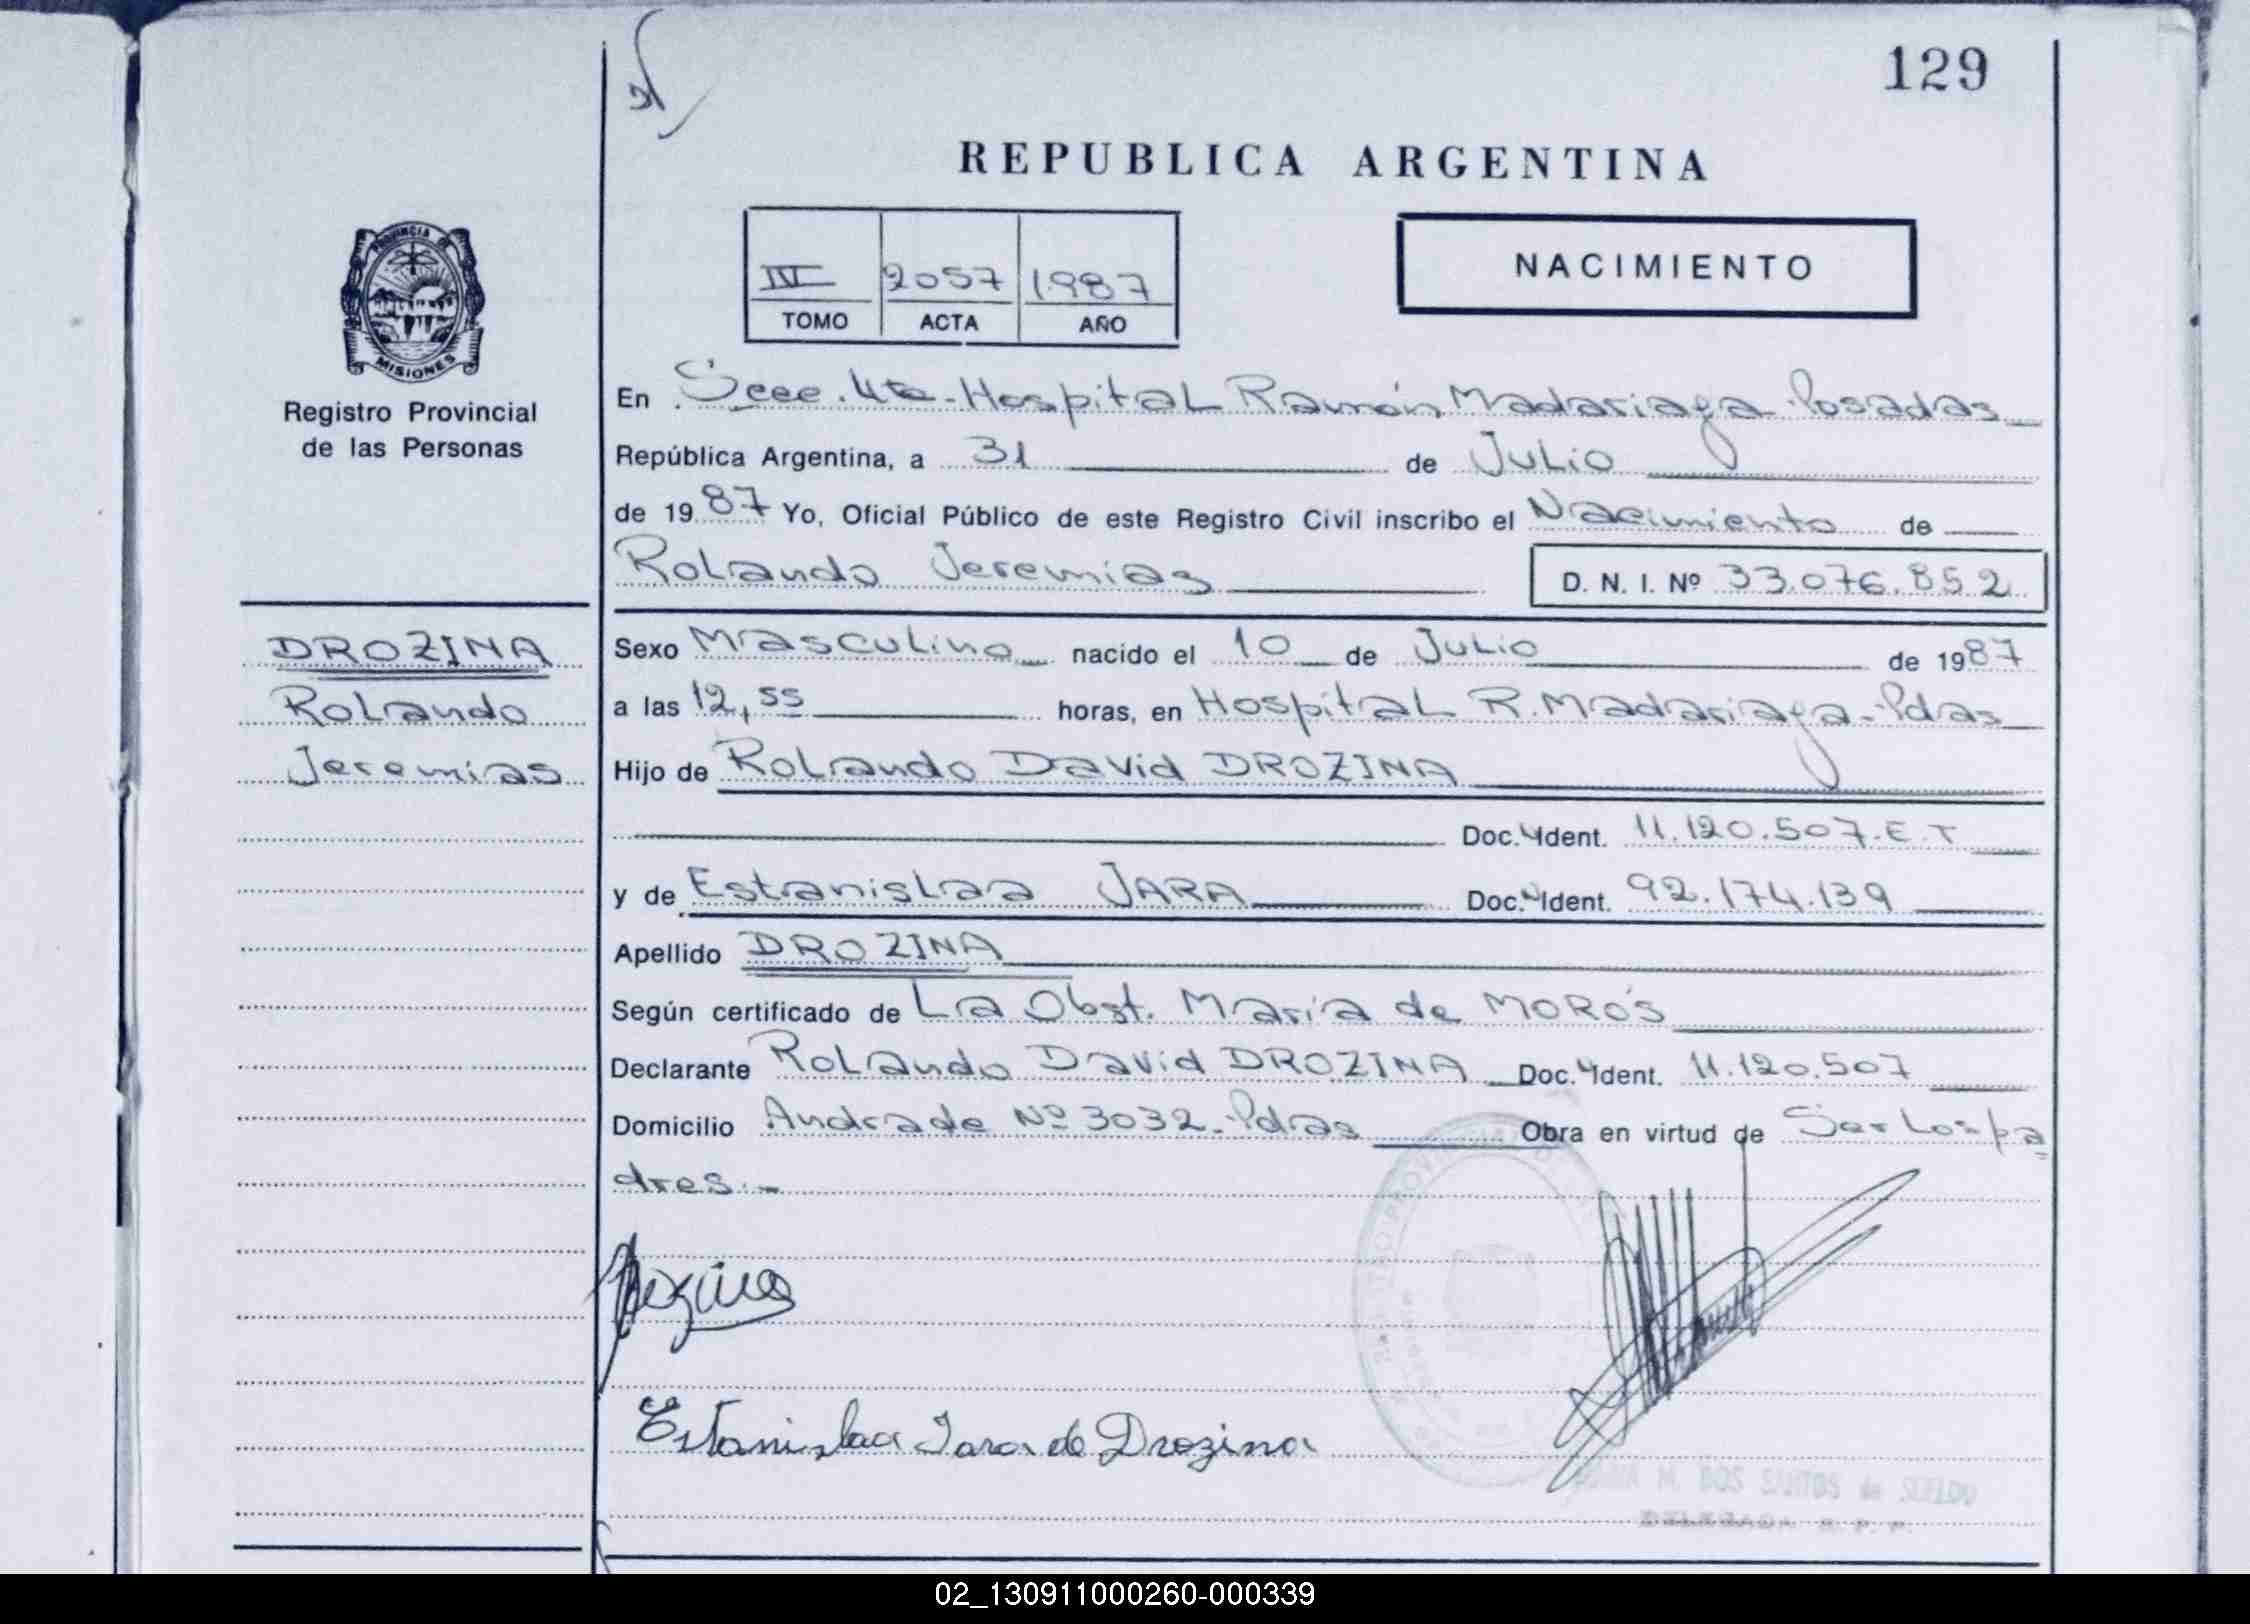 129
REPUBLICA ARGENTINA
PROVINCIA DE
MISIONES
Registro Provincial
de las Personas
IV 2057 1987
TOMO ACTA AÑO
NACIMIENTO
En Secc. 4ta - Hospital Ramón Madariaga Posadas
República Argentina, a 31 de Julio
de 1987 Yo, Oficial Público de este Registro Civil inscribo el Nacimiento de
Rolando Jeremías D. N. I. Nº 33.076.852
DROZINA
Rolando
Jeremias
Sexo Masculino nacido el 10 de Julio de 1987
a las 12,55 horas, en Hospital R. Madariaga - Pdas
Hijo de Rolando David DROZINA
Doc. Ident. 11.120.507. E.T
y de Estanislaa JARA Doc. Ident. 92.174.139
Apellido DROZINA
Según certificado de La Obst. María de MORÓS
Declarante Rolando David DROZINA Doc. Ident. 11.120.507
Domicilio Andrade Nº 3032 - Pdas Obra en virtud de Ser Los pa
dres.-
Estanislaa Jara de Drozina
M. DOS SANTOS de SUELDO
DELEGADA R. P. P.
02_130911000260-000339